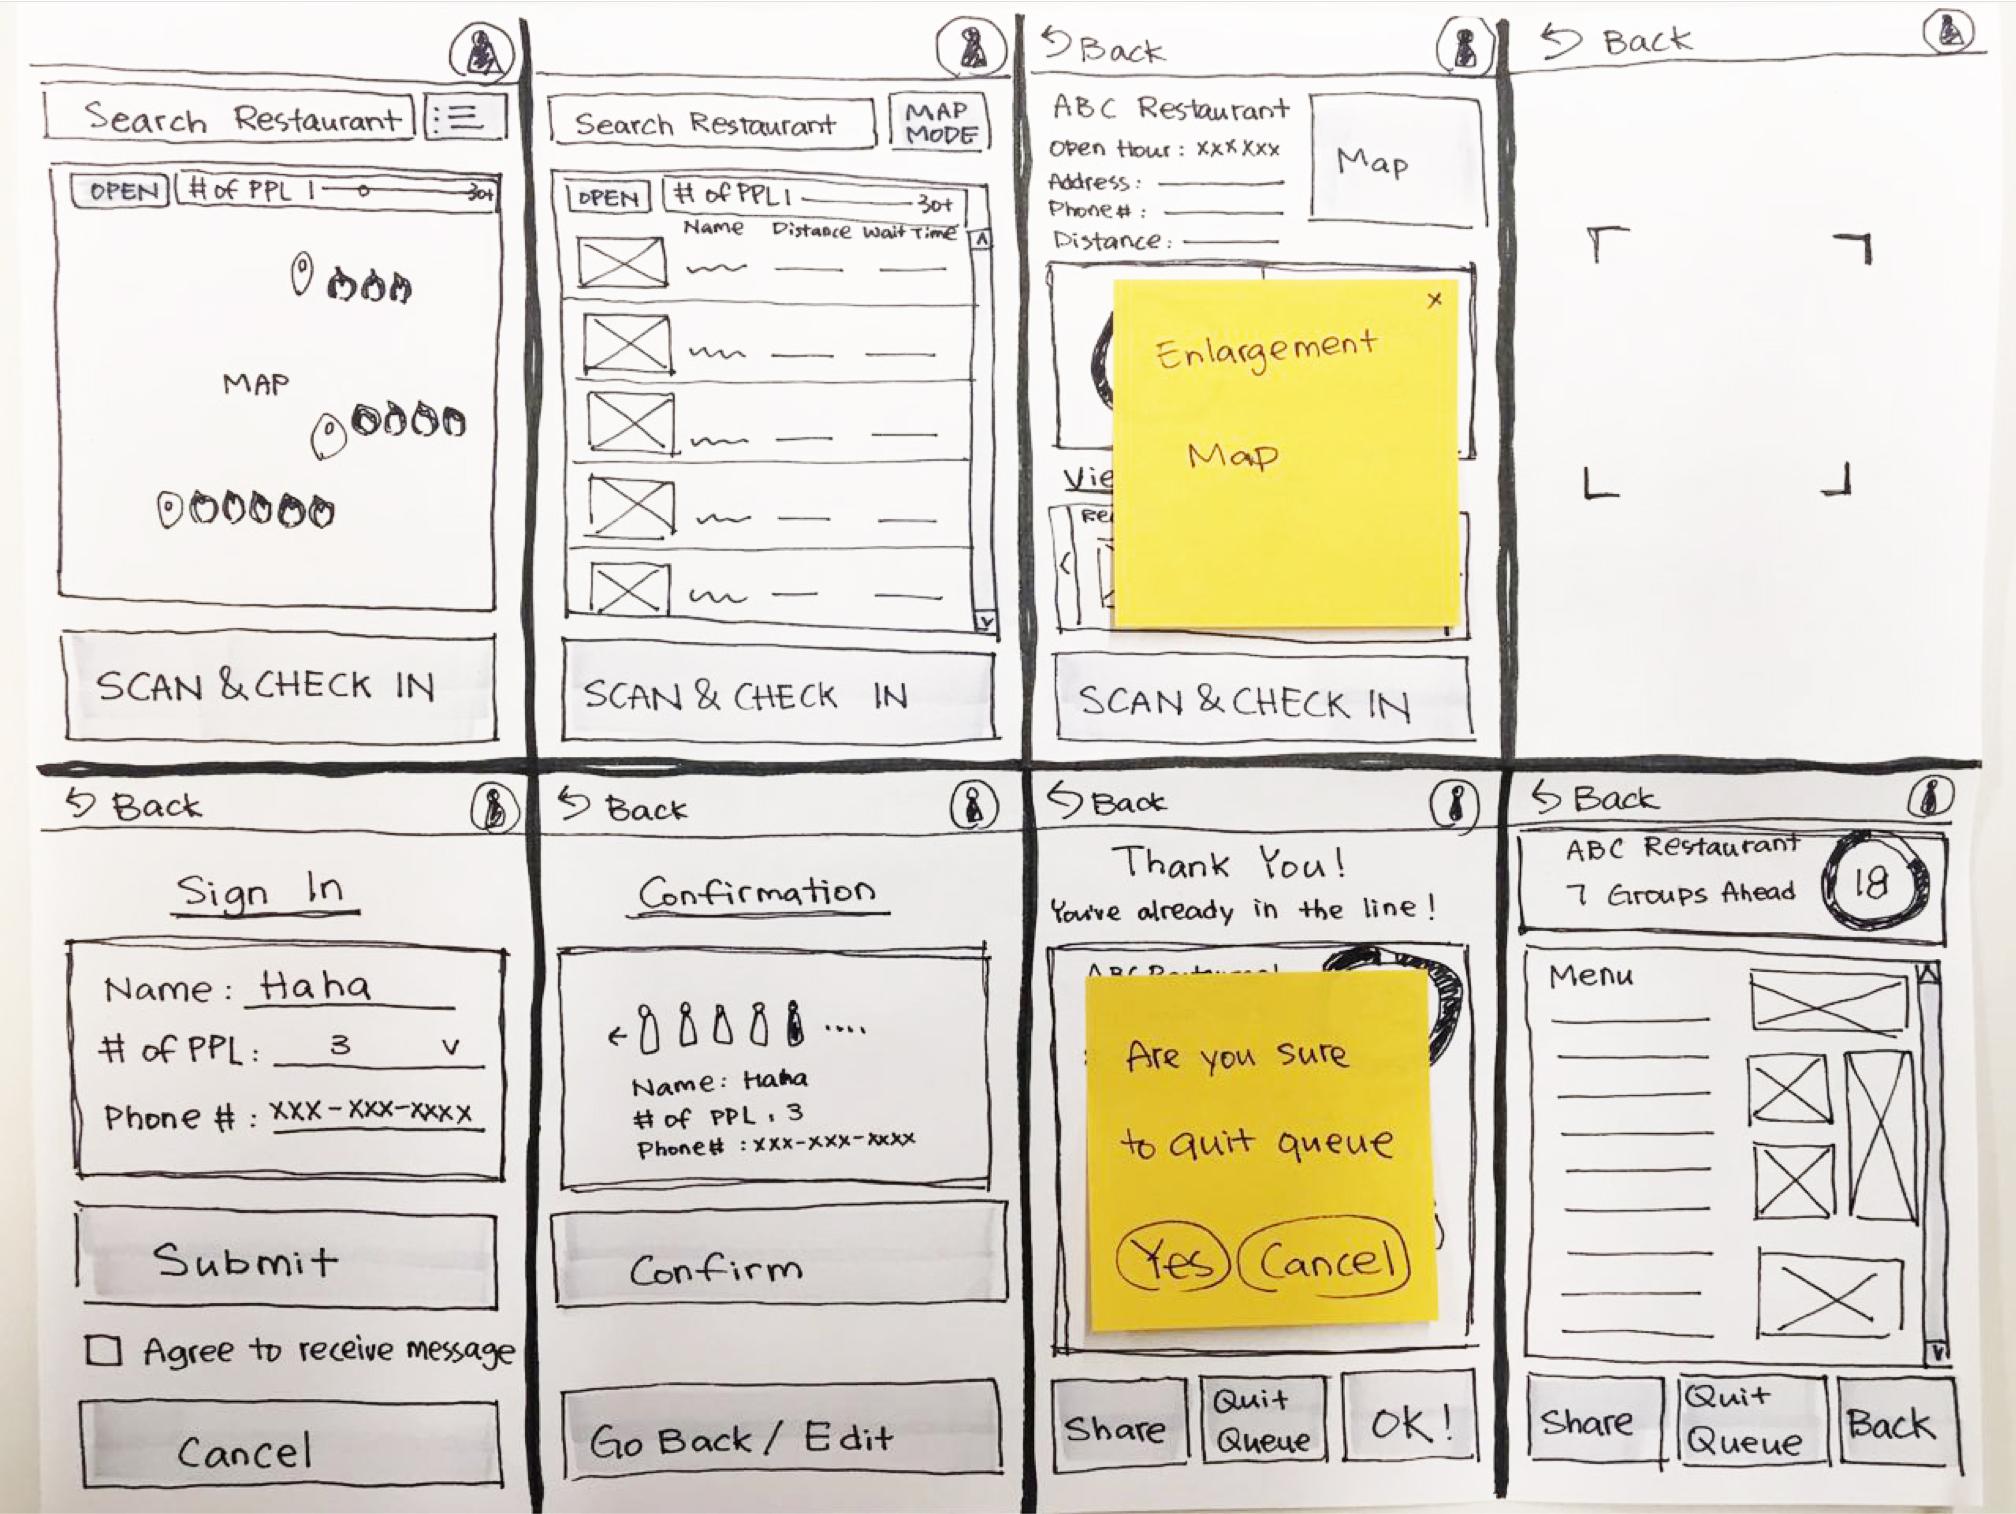 Search Restaurant
OPEN
# of PPL 1 30+
MAP
SCAN & CHECK IN
Search Restaurant
MAP
MODE
OPEN
# of PPL 1 30+
Name Distance Wait Time
SCAN & CHECK IN
Back
ABC Restaurant
Open Hour : xxxxxx
Address :
Phone# :
Distance :
Map
x
Enlargement
Map
Vie
Re
SCAN & CHECK IN
Back
Back
Sign In
Name : Haha
# of PPL : 3 v
Phone # : xxx-xxx-xxxx
Submit
Agree to receive message
Cancel
Back
Confirmation
Name : Haha
# of PPL : 3
Phone# : xxx-xxx-xxxx
Confirm
Go Back / Edit
Back
Thank You!
You've already in the line!
ABC Restaurant
Are you sure
to quit queue
Yes Cancel
Share
Quit
Queue
OK!
Back
ABC Restaurant
7 Groups Ahead
18
Menu
Share
Quit
Queue
Back